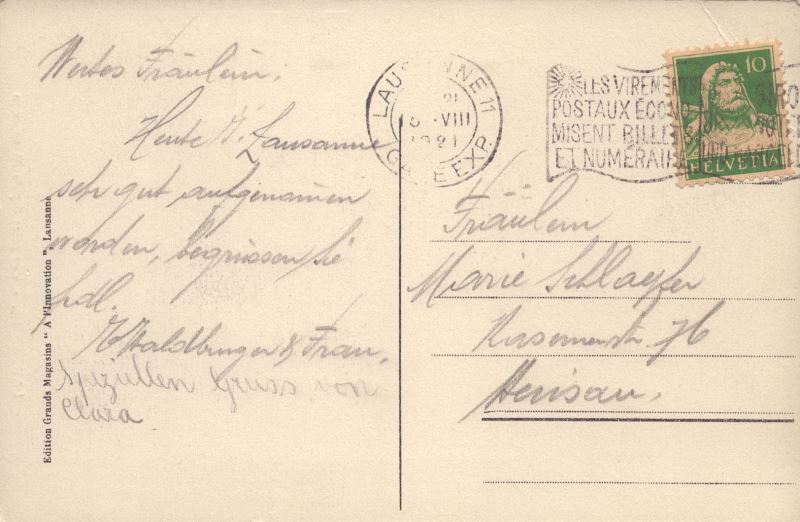 Wertes Fräulein,
Heute i. Lausanne
sehr gut aufgenommen
worden, begrüssen Sie
frdl.
& Frau,
Spezillen Gruss von
Clara
Edition Grands Magasins " A l'Innovation ", Lausanne
LAUSANNE 11
21
VIII
1921
GARE EXP.
LES VIREMENTS
POSTAUX ÉCONO
MISENT BILLETS
ET NUMÉRAIRE
10
HELVETIA
Fräulein
Marie Schlaepfer
Kasernenstr. 76
Herisau.